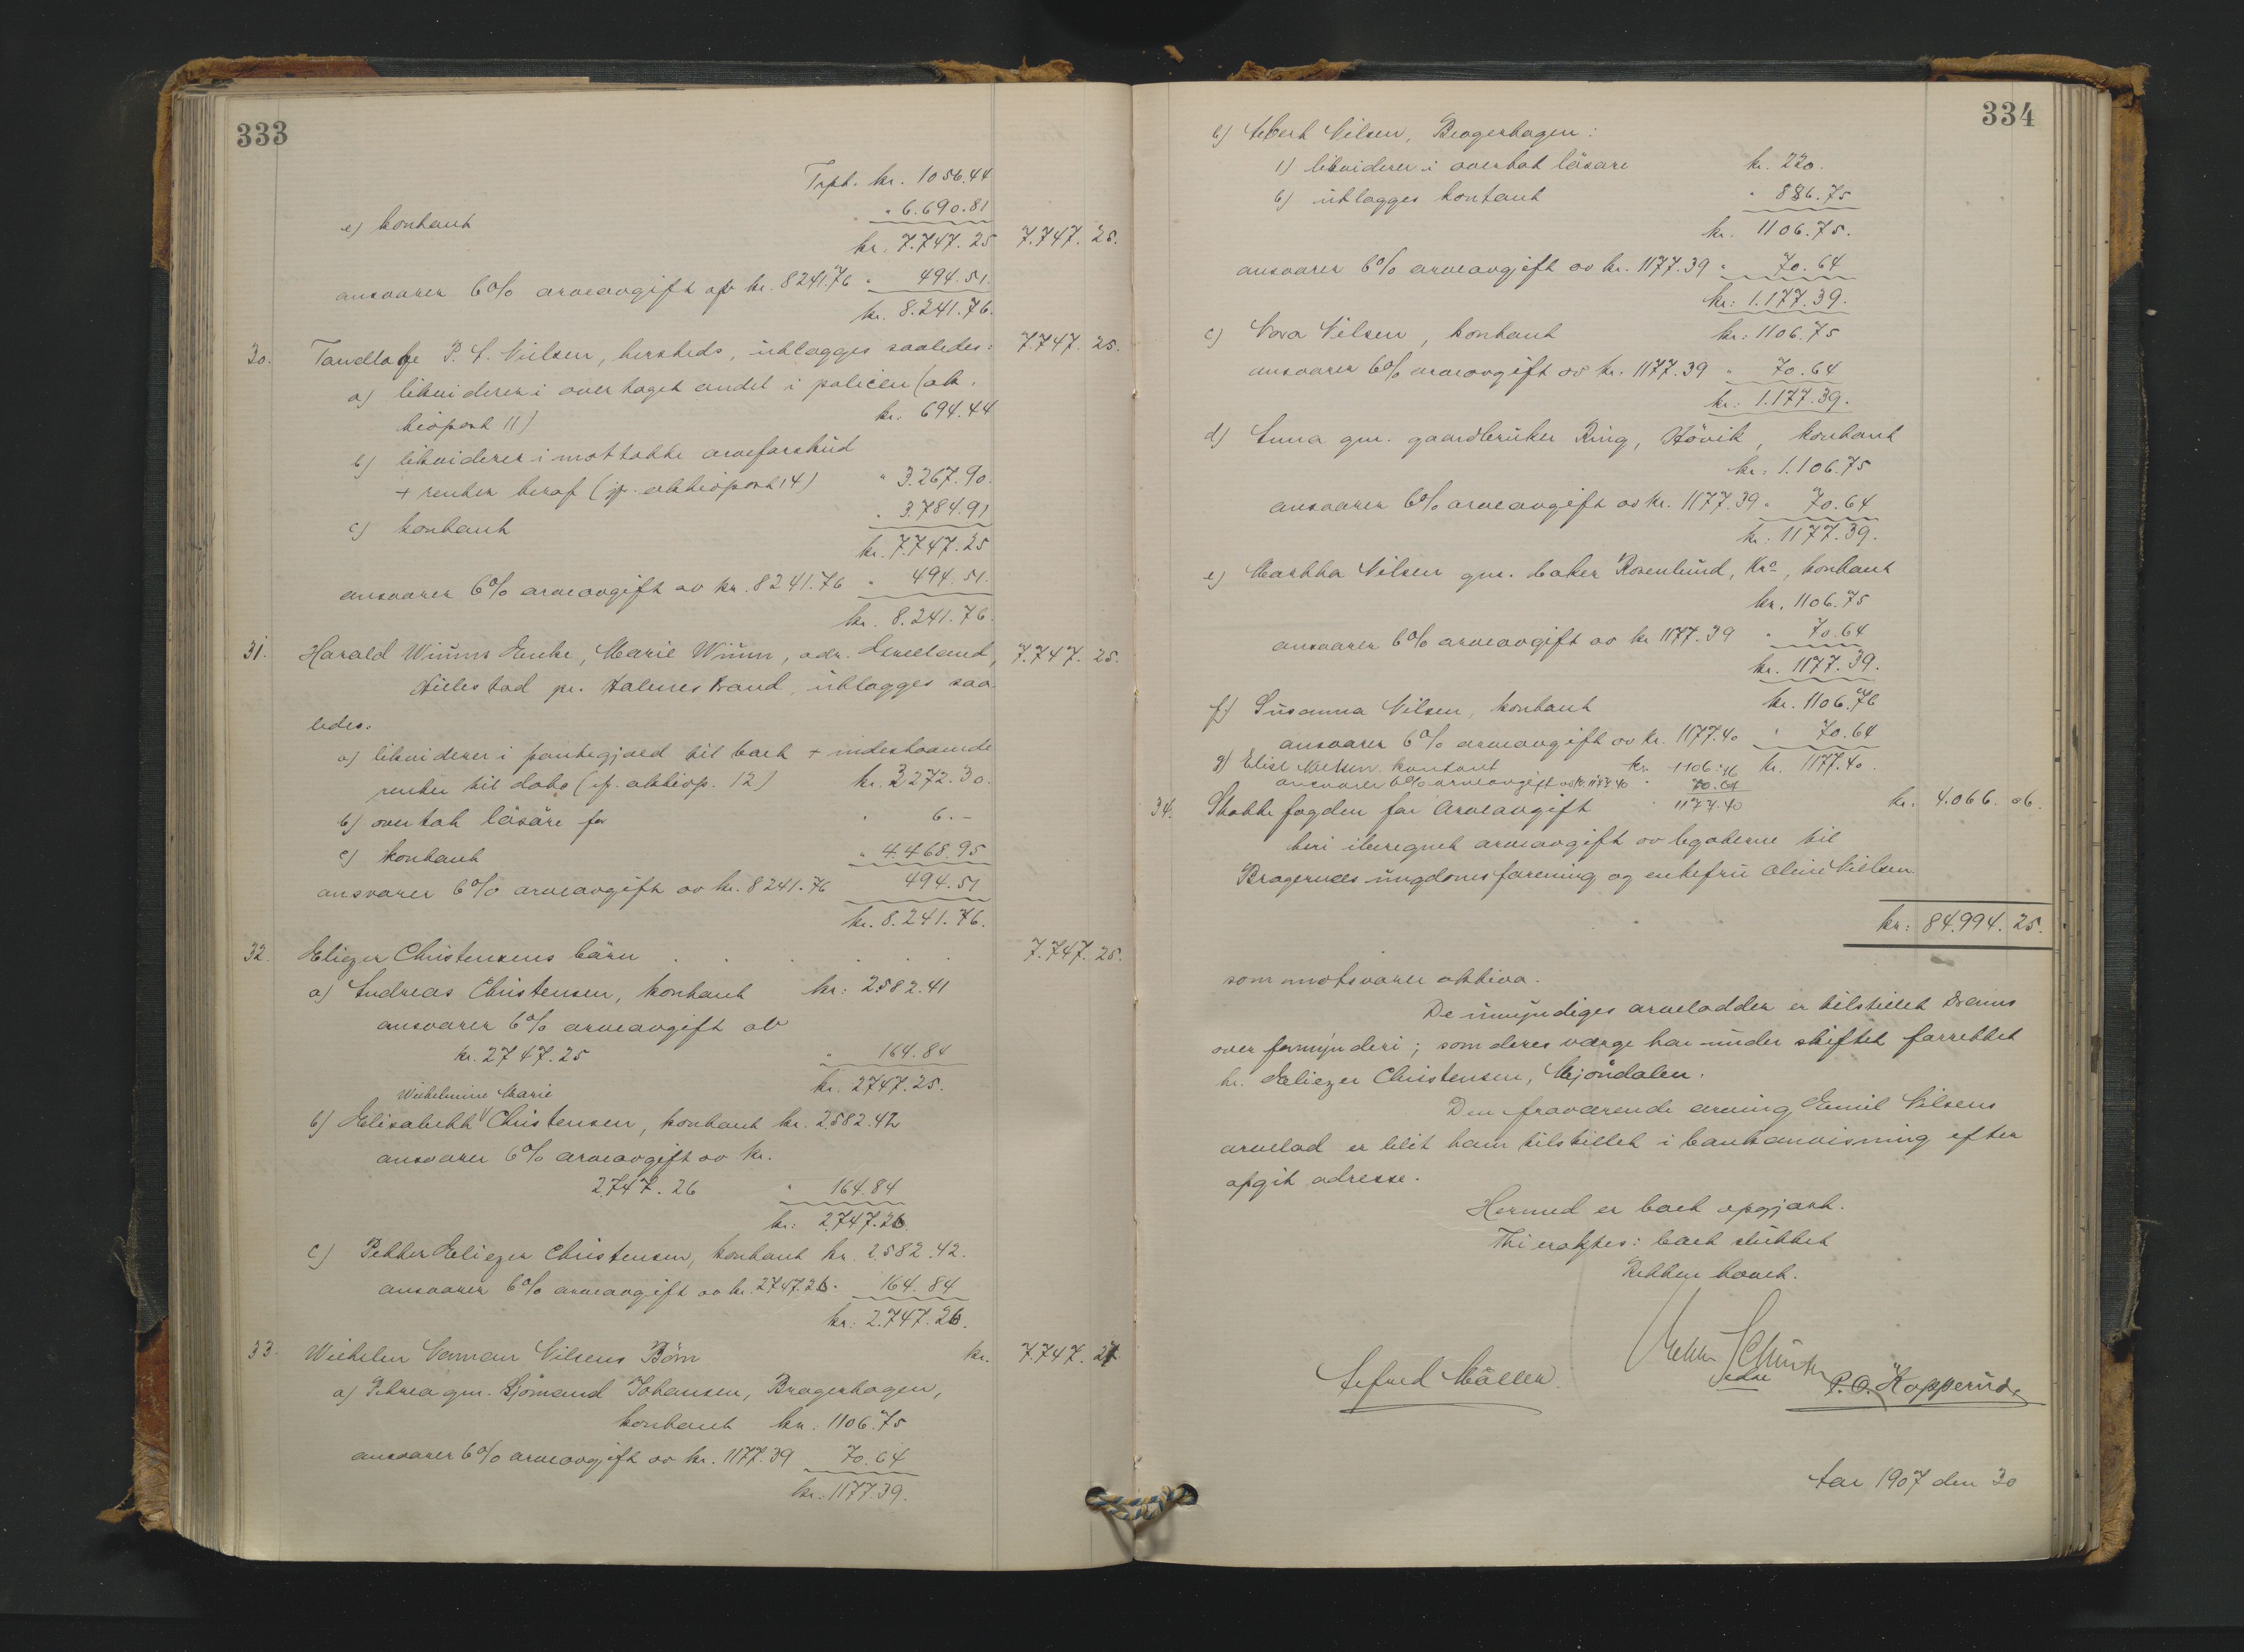 333
Trpt. kr. 1056.44
e) kontant " 6.690.81
kr. 7.747.25 7.747.25.
ansvarer 6% arveavgift af kr. 8241.76 " 494.51.
kr. 8.241.76.
30. Tandlæge P. L. Nielsen, hersteds, utlægges saaledes: 7.747.25.
a) likviderer i overtaget andel i policen (ak-
tivpost 11) kr. 694.44
b) likviderer i mottatte arveforskud
+ renter heraf (jp. aktivpost 14) " 3.267.90.
c) kontant " 3.784.91
kr. 7.747.25
ansvarer 6% arveavgift av kr. 8241.76 " 494.51.
kr. 8.241.76.
31. Harald Wiums Enke, Marie Wium, adr. 7.747.25.
pr. Holmestrand, utlægges saa-
ledes:
a) likviderer i pantegjæld til boet + indestaaende
renter til dato (jp. aktivp. 12) kr. 3272.30.
b) overtat løsøre for " 6.-
c) kontant " 4.468.95
ansvarer 6% arveavgift av kr. 8241.76 494.51
kr. 8.241.76.
32. Eliezer Christensens børn . . . . 7.747.25.
a) Andreas Christensen, kontant kr: 2582.41
ansvarer 6% arveavgift av
kr. 2747.25 " 164.84
kr. 2747.25.
Wilhelmine Marie
b) Elisabeth Christensen, kontant kr. 2582.42
ansvarer 6% arveavgift av kr.
2747.26 " 164.84
kr: 2747.26.
c) Petter Eliezer Christensen, kontant kr. 2582.42.
ansvarer 6% arveavgift av kr. 2747.26. 164.84
kr: 2.747.26.
33. Wilhelm Nilsens Børn kr. 7.747.27
a) Petrea gm. Sjømand Johansen, Bragerhagen,
kontant kr. 1106.75
ansvarer 6% arveavgift av kr. 1177.39 70.64
kr: 1177.39.
334
b) Albert Nilsen, Bragerhagen:
1) likviderer i overtat løsøre kr. 220.
b) utlægges kontant " 886.75
kr. 1106.75.
ansvarer 6% arveavgift av kr. 1177.39 " 70.64
kr: 1.177.39.
c) Nora Nilsen, kontant kr: 1106.75
ansvarer 6% arveavgift av kr. 1177.39 " 70.64
kr: 1.177.39.
d) Anna gm. gaardbruker Ring, Høvik, kontant
kr: 1.106.75
ansvarer 6% arveavgift av kr. 1177.39 " 70.64
kr: 1177.39.
e) Martha Nilsen gm. baker Rosenlund, Kra, kontant
kr. 1106.75
ansvarer 6% arveavgift av kr 1177.39 " 70.64
kr. 1177.39.
f) Susanna Nilsen, kontant kr. 1106.76
ansvarer 6% arveavgift av kr. 1177.40 " 70.64
kr. 1177.40.
g) Elise Nielsen kontant kr. 1106.76
ansvarer 6% arveavgift av kr. 1177.40 " 70.64
1177.40
34. Skattefogden for Arveavgift kr. 4.066.06.
heri iberegnet arveavgift av legaterne til
Bragernæs ungdomsforening og enkefru Oline Nielsen.
kr: 84.994.25.
som motsvarer aktiva.
De umyndiges arvelodder er tilstillet Drams
overformynderi; som deres værge har under skiftet forrettet
hr. Eliezer Christensen, Mjøndalen.
Den fraværende arving Emil Nilsens
arvelod er blit ham tilstillet i bankanvisning efter
opgit adresse.
Hermed er boet opgjort.
Thi eragtes: boet sluttet
Retten hævet.
Alfred Møller. P.O. Kopperud.
Aar 1907 den 30